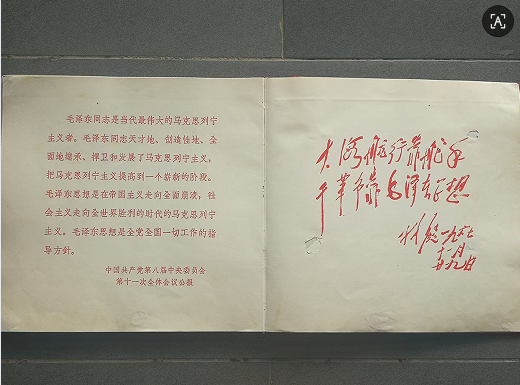 毛泽东同志是当代最伟大的马克思列宁
主义者。毛泽东同志天才地、创造性地、全
面地继承、捍卫和发展了马克思列宁主义，
把马克思列宁主义提高到一个崭新的阶段。
毛泽东思想是在帝国主义走向全面崩溃，社
会主义走向全世界胜利的时代的马克思列宁
主义。毛泽东思想是全党全国一切工作的指
导方针。
中国共产党第八届中央委员会
第十一次全体会议公报
大海航行靠舵手
干革命靠毛泽东思想
林彪一九六七
十一月
廿九日